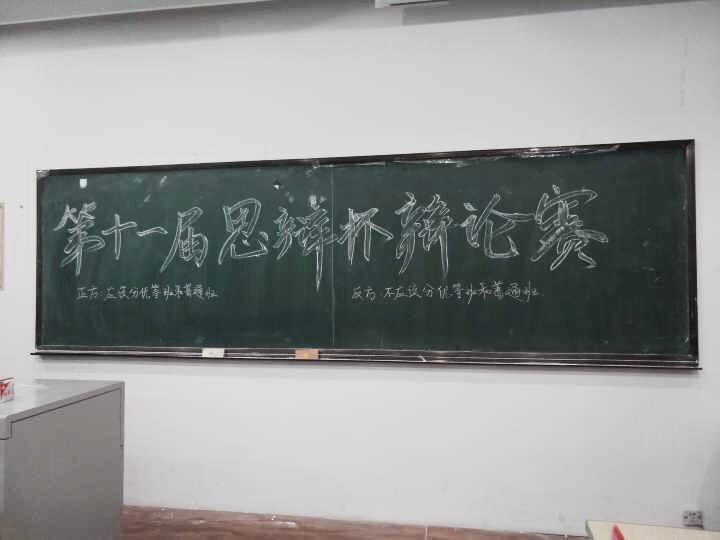 第十一届思辩杯辩论赛
正方:应该分优等班和普通班
反方:不应该分优等班和普通班